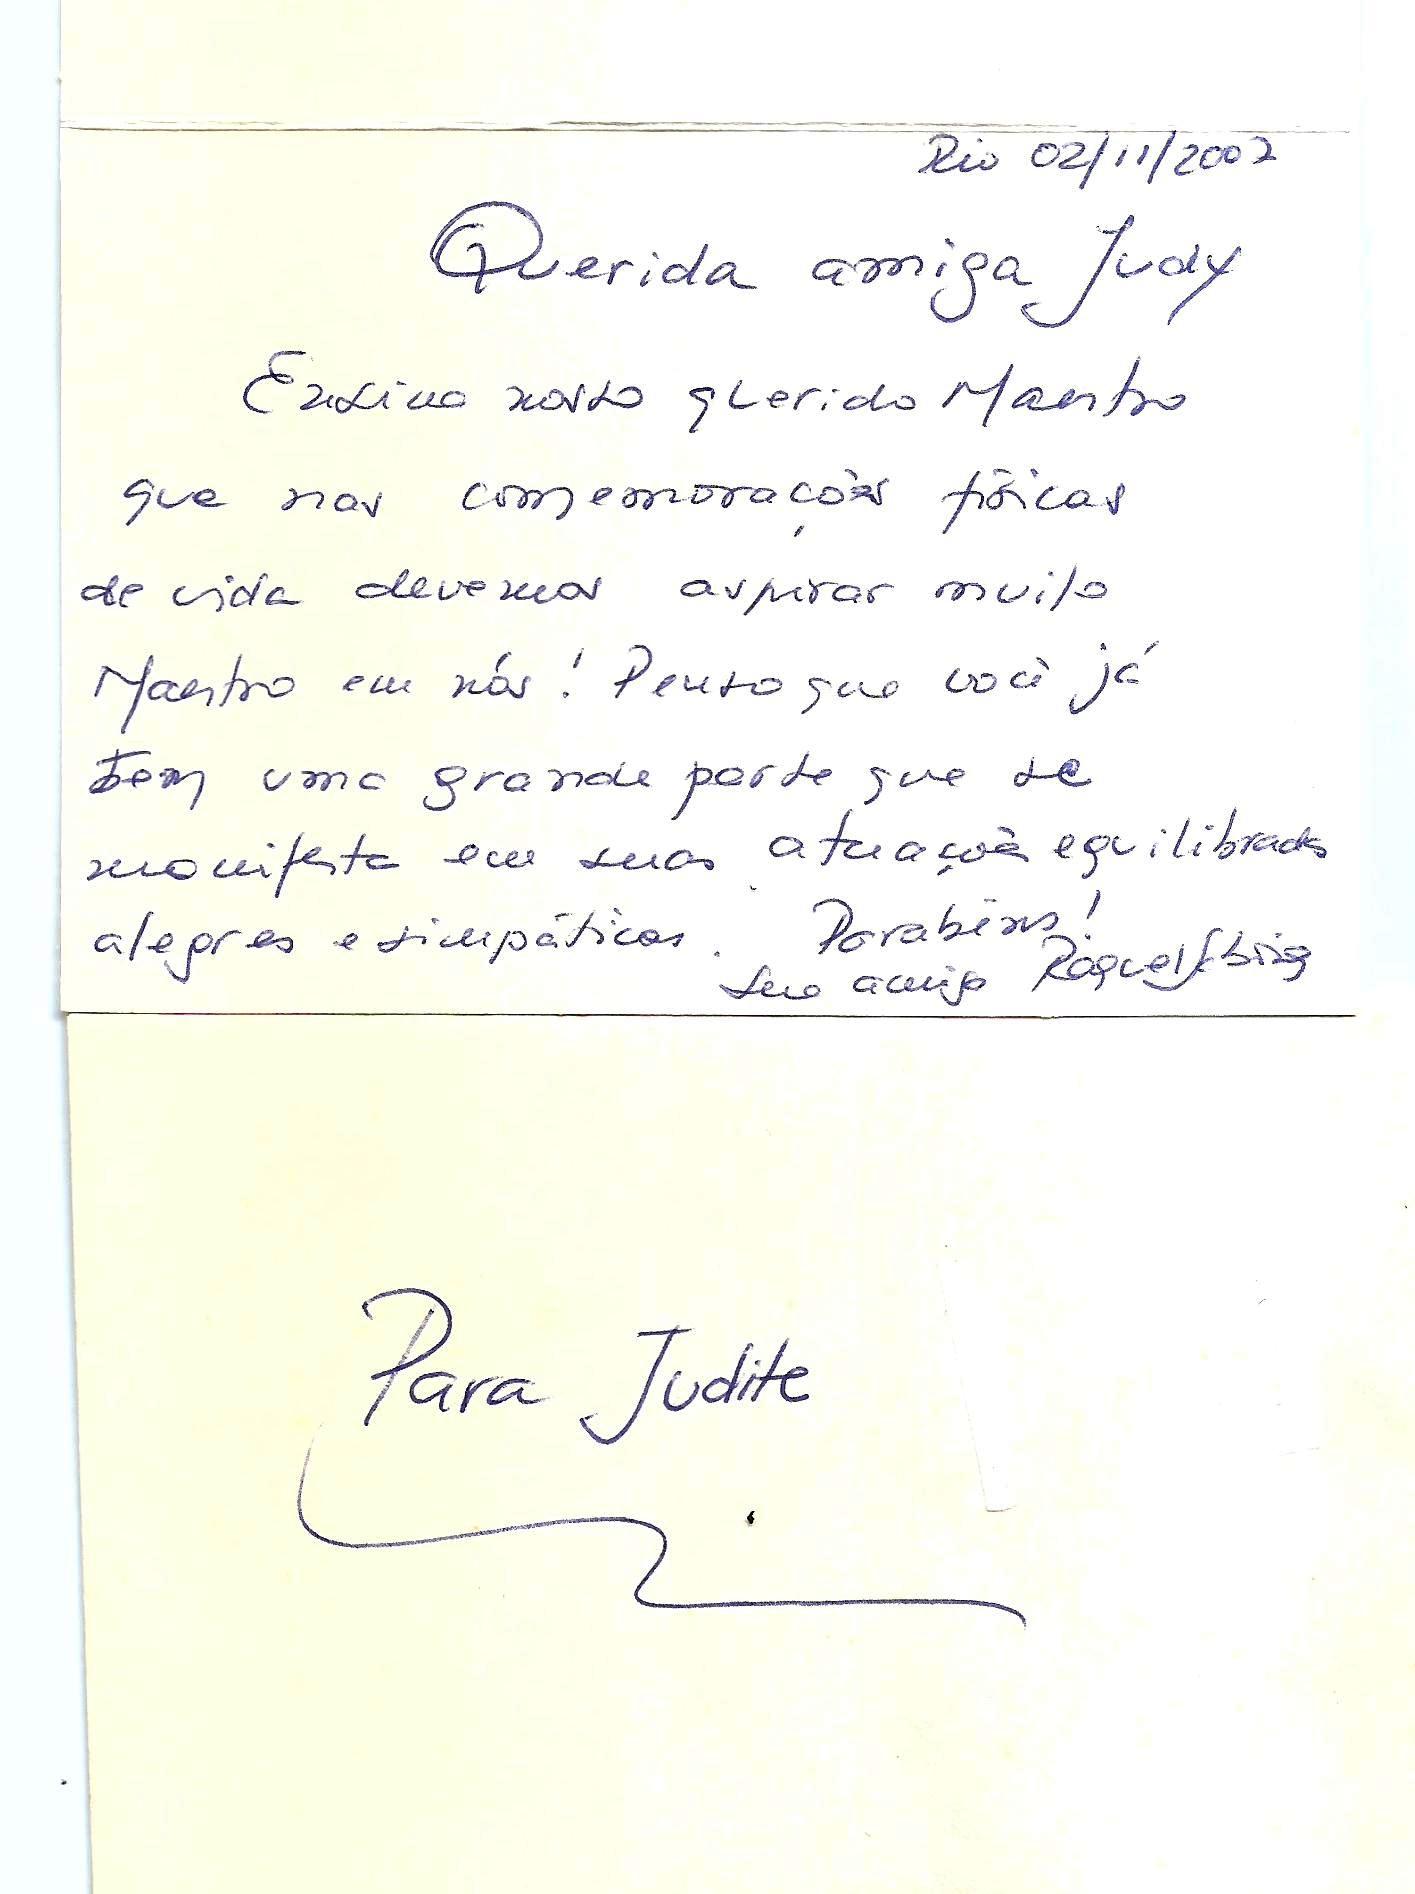 Rio 02/11/2007
Querida amiga Judy
Ensina nosso querido Maestro
que nas comemorações físicas
de vida devemos aspirar muito
Maestro em nós! Penso que você já
tem uma grande parte que se
manifesta em suas atuações equilibradas
alegres e simpáticas. Parabéns!
sua amiga Raquel
Para Judite